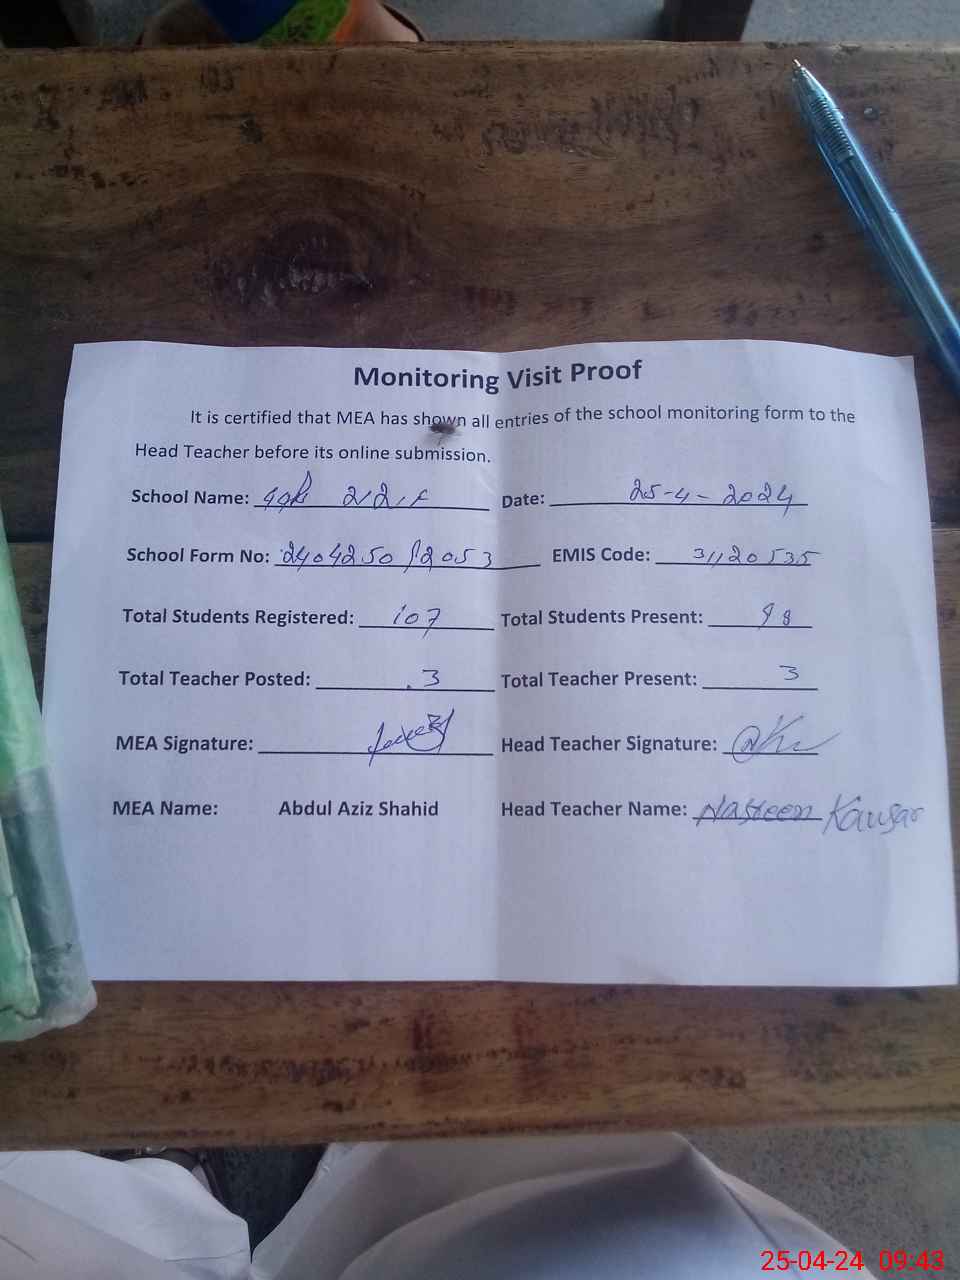 Monitoring Visit Proof
It is certified that MEA has shown all entries of the school monitoring form to the
Head Teacher before its online submission.
School Name: Date: 25-4-2024
School Form No: EMIS Code: 31120535
Total Students Registered: 107 Total Students Present: 98
Total Teacher Posted: 3 Total Teacher Present: 3
MEA Signature: Head Teacher Signature:
MEA Name: Abdul Aziz Shahid Head Teacher Name: Nasreen Kausar
25-04-24 09:43